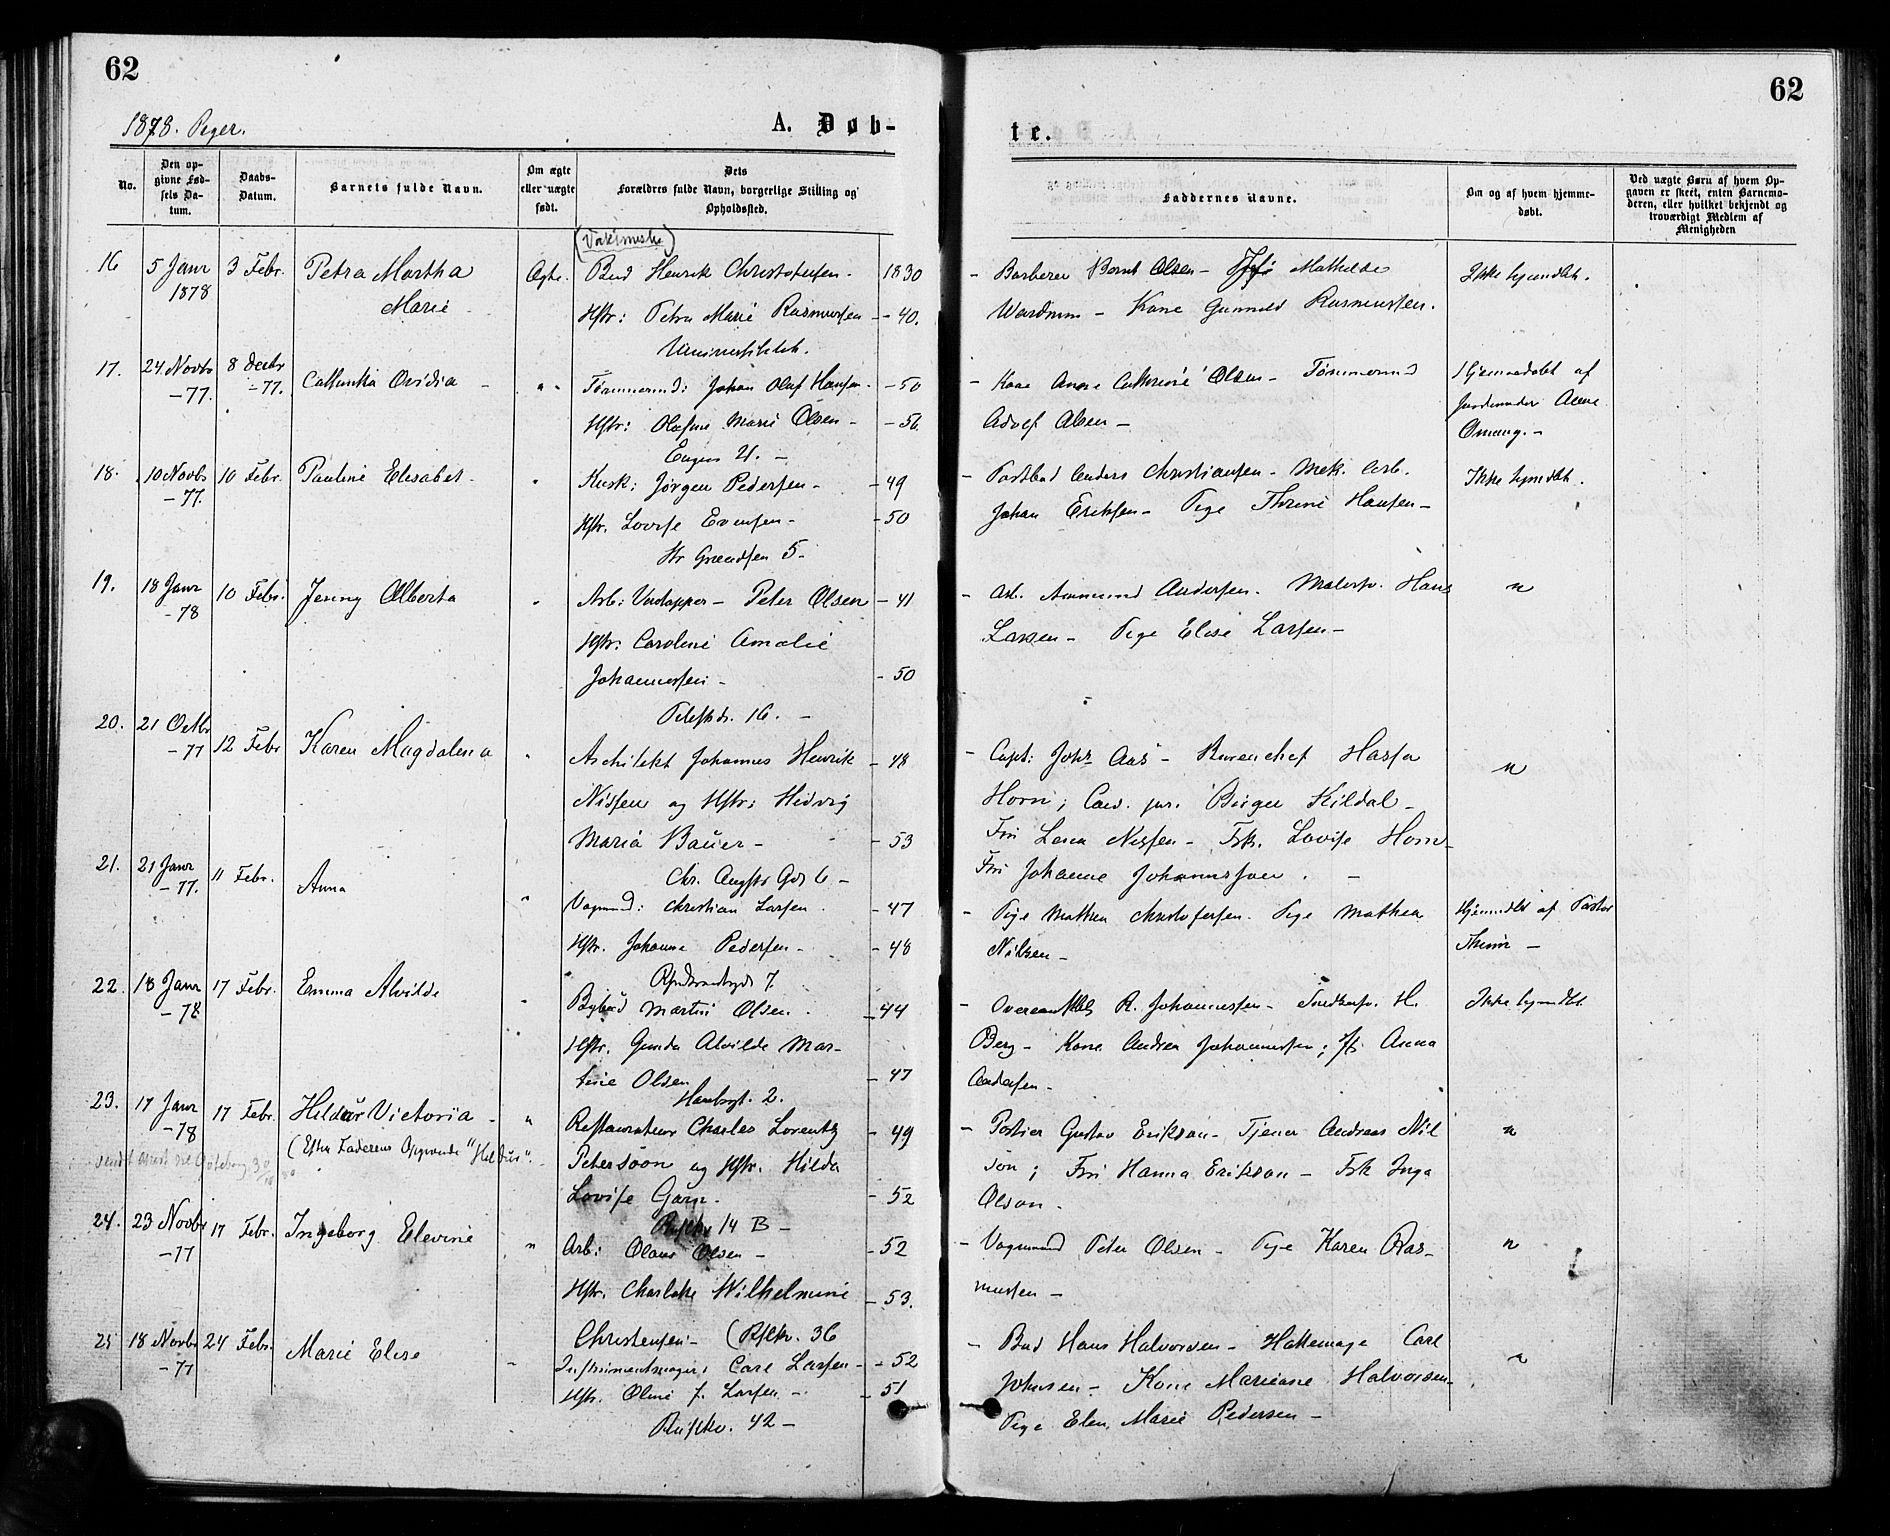 62
1878. Piger.
A. Døb-
No.
Den op-
givne Fød-
sels Da-
tum.
Daabs-
Datum.
Barnets fulde Navn.
Om ægte
eller uægte
født.
Dets
Forældres fulde Navn, borgerlige Stilling og
Opholdssted.
16 5 Janr 1878 3 Febr. Petra Martha Marie Ægte. Bud Henrik Christofersen - 1830
Hstr: Petra Marie Rasmussen - 40.
17. 24 Novbr -77. 8 Decbr -77. Cathinka Ovidia - " " Tømmermd: Johan Olaf Hansen - 50
Hstr: Olafine Marie Olsen - - 56
Eugens 21. -
18. 10 Novbr -77. 10 Febr. Pauline Elisabet - " Kusk: Jørgen Pedersen - - 49
Hstr. Lovise Evensen - - 50
Grændsen 5.
19. 18 Janr -78 10 Febr. Jenny Alberta " Arb: Peter Olsen - 41
Hstr: Caroline Amalie
Johannessen - - 50
16. -
20. 21 Octbr -77 12 Febr Karen Magdalena " Architekt Johannes Henrik - 48
Nissen og Hstr: Hedvig
Maria Bauer - - 53
Chr. Augsts Gd 6 -
21. 21 Janr -77. 11 Febr. Anna " Vognmd: Christian Larsen - 47
Hstr. Johanne Pedersen - - 48
7.
22. 18 Janr -78 17 Febr. Emma Alvilde " Bybud Martin Olsen. - 44
Hstr. Gunda Alvilde Mar-
tine Olsen - 47
2.
23. 17 Janr -78 17 Febr. Hildur Victoria - " Restaurateur Charles Lorentz - 49
(Efter Faderens Opgivende "Hildur". Petersson og Hstr. Hilda
Lovise Garn. - 52
14 B -
24. 23 Novbr -77 17 Febr. Ingeborg Elevine " Arb: Olaus Olsen - - 52
Hstr. Charlotte Wilhelmine - 53.
Christensen - (Rflkv. 36
25 18 Novbr -77 24 Febr. Marie Elise " Instrumentmager: Carl Larsen - - 52
Hstr. Oline f. Larsen - - 51
42 -
62
te.
Faddernes Navne.
Om og af hvem hjemme-
døbt.
Ved uægte Børn af hvem Op-
gaven er skeet, enten Barnemo-
deren, eller hvilket bekjendt og
troværdigt Medlem af
Menigheden
- Barberer Bernt Olsen - Mathilde Ikke hjemdbt.
- Kone Gunnild Rasmussen.
- Kone Anne Cathrine Olsen - Tømmermd Hjemmedøbt af
Adolf Olsen - Jordemoder Anne
Omang. -
- Postbud Anders Christiansen - Mek. Arb. Ikke hjemdbt.
Johan Eriksen - Pige Thrine Hansen -
- Arb. Ammund Andersen. Malersv. Hans "
Larsen - Pige Elise Larsen -
- Capt: Johs Aas - Bureauchef Hassa "
Horn; Cand. jur. Birger Kildal -
Fru Lena Nissen - Frk. Lovise Horn -
Fru Johanne Johannsson. -
- Pige Mathea Christofersen. Pige Mathea Hjemmedbt af Pastor
Nilsen -
- R. Johannessen - Snedkersv. H. Ikke hjemdbt
Berg - Kone Andrea Johannessen; Anna
Andersen -
- Portier Gustav Erikson - Tjener Andreas Nil "
son; Fru Hanna Erikson - Frk Inga
Olson -
- Vognmand Peter Olsen - Pige Karen Ras- "
mussen -
- Bud Hans Halvorsen - Hattemager Carl "
Johnsen - Kone Mariane Halvorsen -
Pige Elen Marie Pedersen -